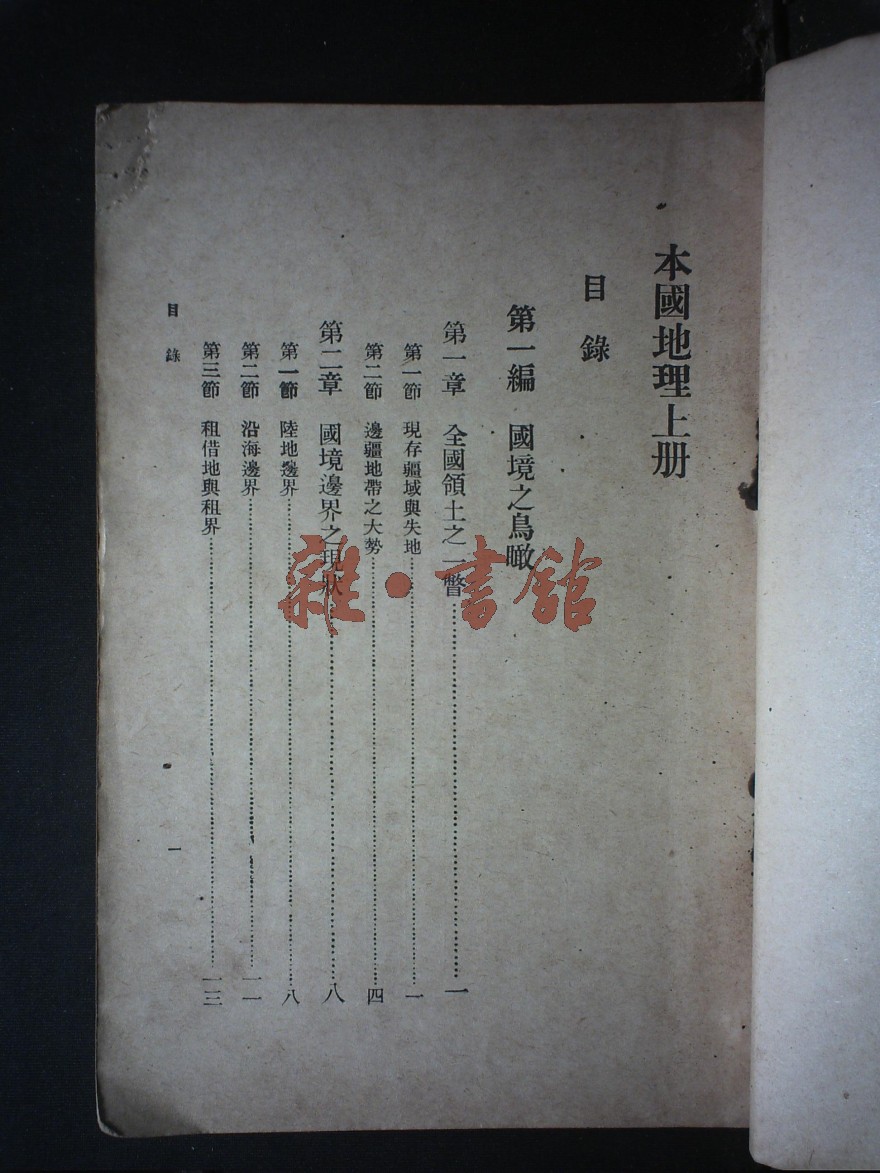 本國地理上册
目錄
第一編 國境之鳥瞰
第一章 全國領土之一瞥……一
第一節 現存疆域與失地……一
第二節 邊疆地帶之大勢……四
第二章 國境邊界之現狀……八
第一節 陸地邊界……八
第二節 沿海邊界……一一
第三節 租借地與租界……一三
目錄
一
雜·書館